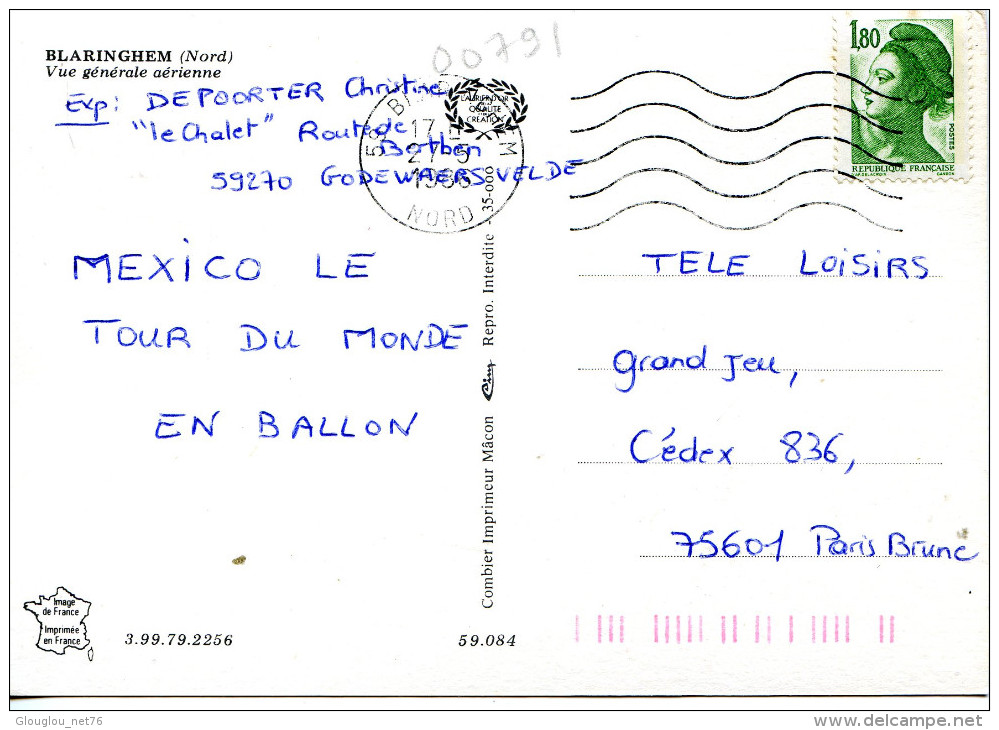 00791
BLARINGHEM (Nord)
Vue générale aérienne
Exp: DEPOORTER Christine
"le Chalet" Route de
Bothen
59270 GODEWAERSVELDE
MEXICO LE
TOUR DU MONDE
EN BALLON
17 H
27-5
1986
NORD
LAURIER D'OR
QUALITE
CREATION
Combier Imprimeur Mâcon Cim Repro. Interdite - 35-000
1,80
POSTES
REPUBLIQUE FRANÇAISE
TELE LOISIRS
grand jeu,
Cédex 836,
75601 Paris Brune
Image
de France
Imprimée
en France
3.99.79.2256
59.084
Glouglou_net76
delcampe.net